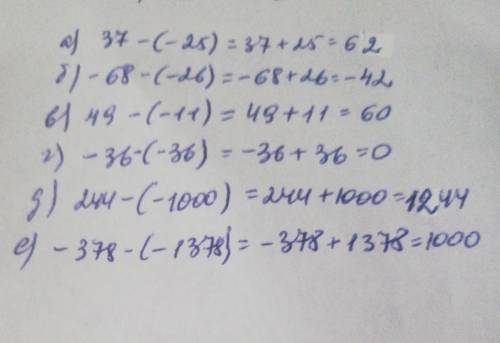 а) 37 - (- 25) = 37 + 25 = 62
б) - 68 - (-26) = - 68 + 26 = - 42
в) 49 - (- 11) = 49 + 11 = 60
г) - 36 - (- 36) = - 36 + 36 = 0
д) 244 - (- 1000) = 244 + 1000 = 1244
е) - 378 - (- 1378) = - 378 + 1378 = 1000